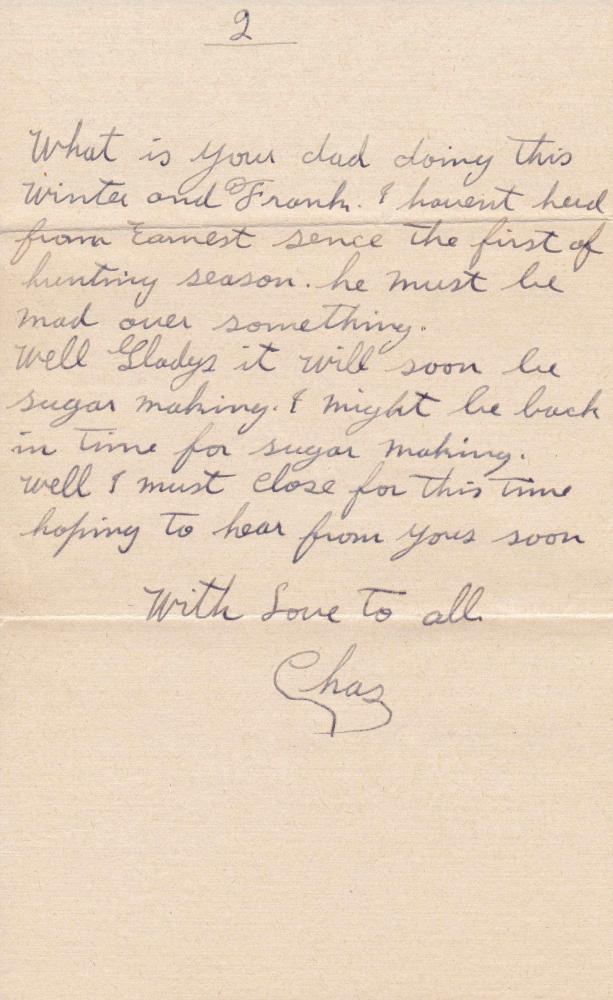 2
What is your dad doing this
Winter and Frank. I havent herd
from Earnest sence the first of
hunting season. he must be
mad over something.
Well Gladys it will soon be
sugar making. I might be back
in time for sugar making.
Well I must close for this time
hoping to hear from yous soon
With Love to all.
Chas